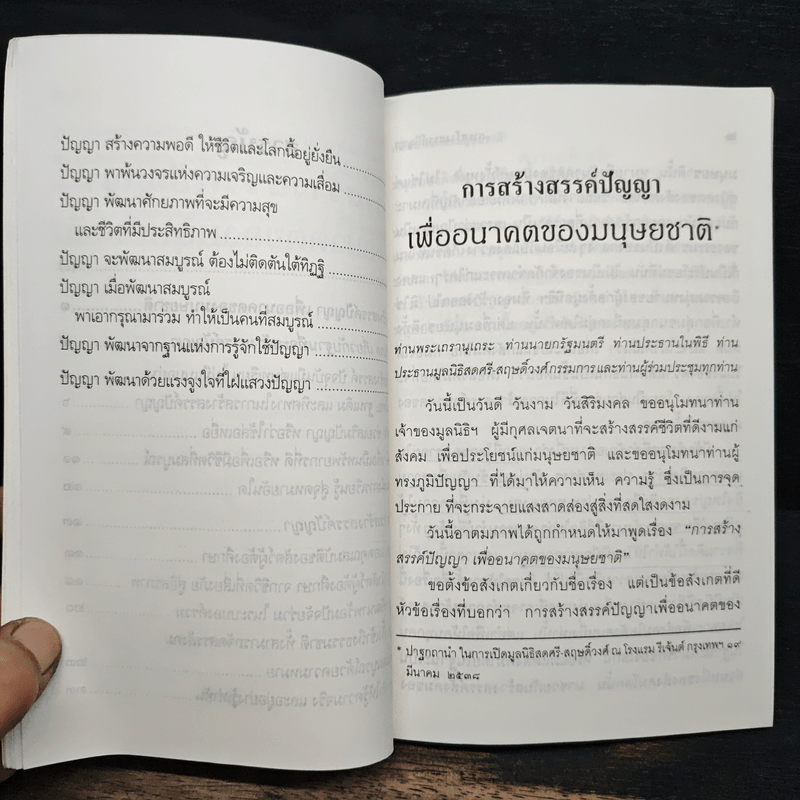 ปัญญา สร้างความพอดี ให้ชีวิตและโลกนี้อยู่ยั่งยืน
ปัญญา พาพ้นวงจรแห่งความเจริญและความเสื่อม
ปัญญา พัฒนาศักยภาพที่จะมีความสุข
และชีวิตที่มีประสิทธิภาพ
ปัญญา จะพัฒนาสมบูรณ์ ต้องไม่ติดตันใต้ทิฏฐิ
ปัญญา เมื่อพัฒนาสมบูรณ์
พาเอากรุณามาร่วม ทำให้เป็นคนที่สมบูรณ์
ปัญญา พัฒนาจากฐานแห่งการรู้จักใช้ปัญญา
ปัญญา พัฒนาด้วยแรงจูงใจที่ใฝ่แสวงปัญญา
การสร้างสรรค์ปัญญา
เพื่ออนาคตของมนุษยชาติ*
ท่านพระเถรานุเถระ ท่านนายกรัฐมนตรี ท่านประธานในพิธี ท่าน
ประธานมูลนิธิสดศรี-สฤษดิ์วงศ์กรรมการและท่านผู้ร่วมประชุมทุกท่าน
วันนี้เป็นวันดี วันงาม วันสิริมงคล ขออนุโมทนาท่าน
เจ้าของมูลนิธิฯ ผู้มีกุศลเจตนาที่จะสร้างสรรค์ชีวิตที่ดีงามแก่
สังคม เพื่อประโยชน์แก่มนุษยชาติ และขออนุโมทนาท่านผู้
ทรงภูมิปัญญา ที่ได้มาให้ความเห็น ความรู้ ซึ่งเป็นการจุด
ประกาย ที่จะกระจายแสงสาดส่องสู่สิ่งที่สดใสงดงาม
วันนี้อาตมภาพได้ถูกกำหนดให้มาพูดเรื่อง “การสร้าง
สรรค์ปัญญา เพื่ออนาคตของมนุษยชาติ”
ขอตั้งข้อสังเกตเกี่ยวกับชื่อเรื่อง แต่เป็นข้อสังเกตที่ดี
หัวข้อเรื่องที่บอกว่า การสร้างสรรค์ปัญญาเพื่ออนาคตของ
* ปาฐกถานำ ในการเปิดมูลนิธิสดศรี-สฤษดิ์วงศ์ ณ โรงแรม รีเจ้นต์ กรุงเทพฯ ๑๙
มีนาคม ๒๕๓๘